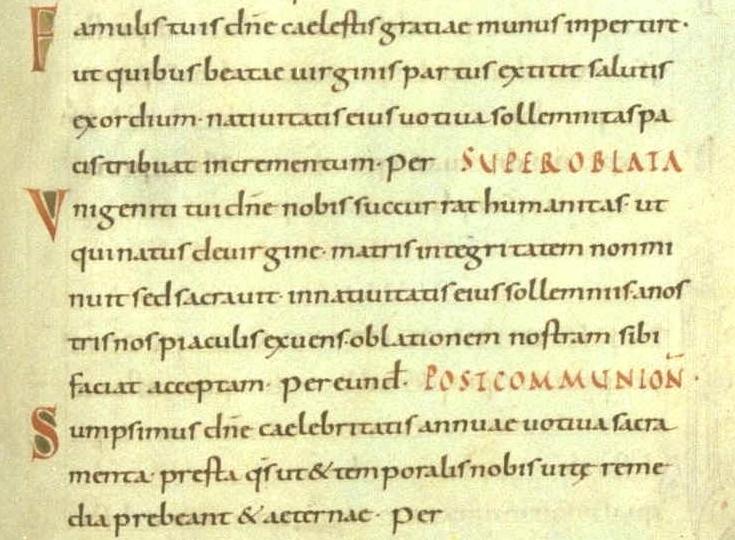 Famulis tuis dñe caelestis gratiae munus inpertire·
ut quibus beatae uirginis partus extitit salutis
exordium· natiuitatis eius uotiua sollemnitas pa
cis tribuat incrementum· Per SUPER OBLATA
Vnigeniti tui dñe nobis succurrat humanitas· ut
qui natus de uirgine· matris integritatem non mi
nuit sed sacrauit· in natiuitatis eius sollemniis· a nos
tris nos piaculis exuens· oblationem nostram sibi
faciat acceptam· Per eund̄· POSTCOMMUNIOÑ·
Sumpsimus dñe caelebritatis annuae uotiua sacra
menta· presta q̄s ut & temporalis nobis uitę reme
dia prebeant & aeternae· Per